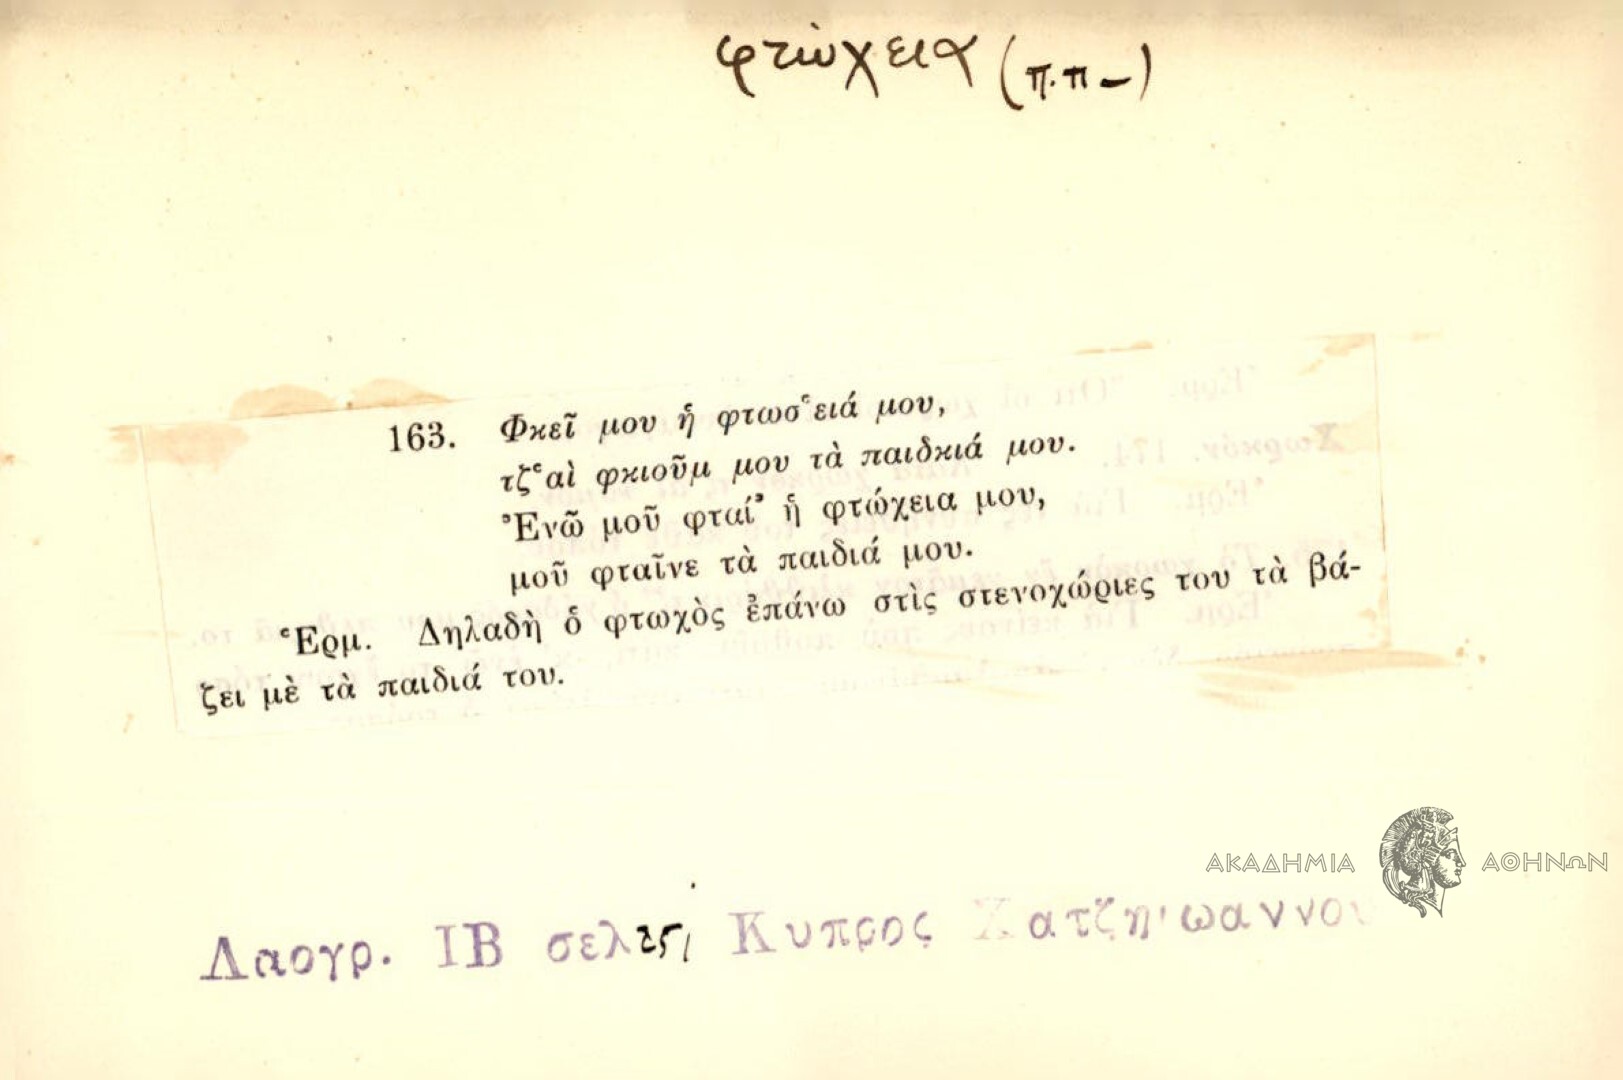 φτώχεια (π.π—)
163. Φκεῖ μου ἡ φτωσ̔ειά μου,
τζ̔αὶ φκιοῦμ μου τὰ παιδκιά μου.
Ἐνῶ μοῦ φταί’ ἡ φτώχεια μου,
μοῦ φταῖνε τὰ παιδιά μου.
Ἑρμ. Δηλαδὴ ὁ φτωχὸς ἐπάνω στὶς στενοχώριες του τὰ βά-
ζει μὲ τὰ παιδιά του.
ΑΚΑΔΗΜΙΑ ΑΘΗΝΩΝ
Λαογρ. ΙΒ σελ 251 Κυπρος Χατζηιωαννου